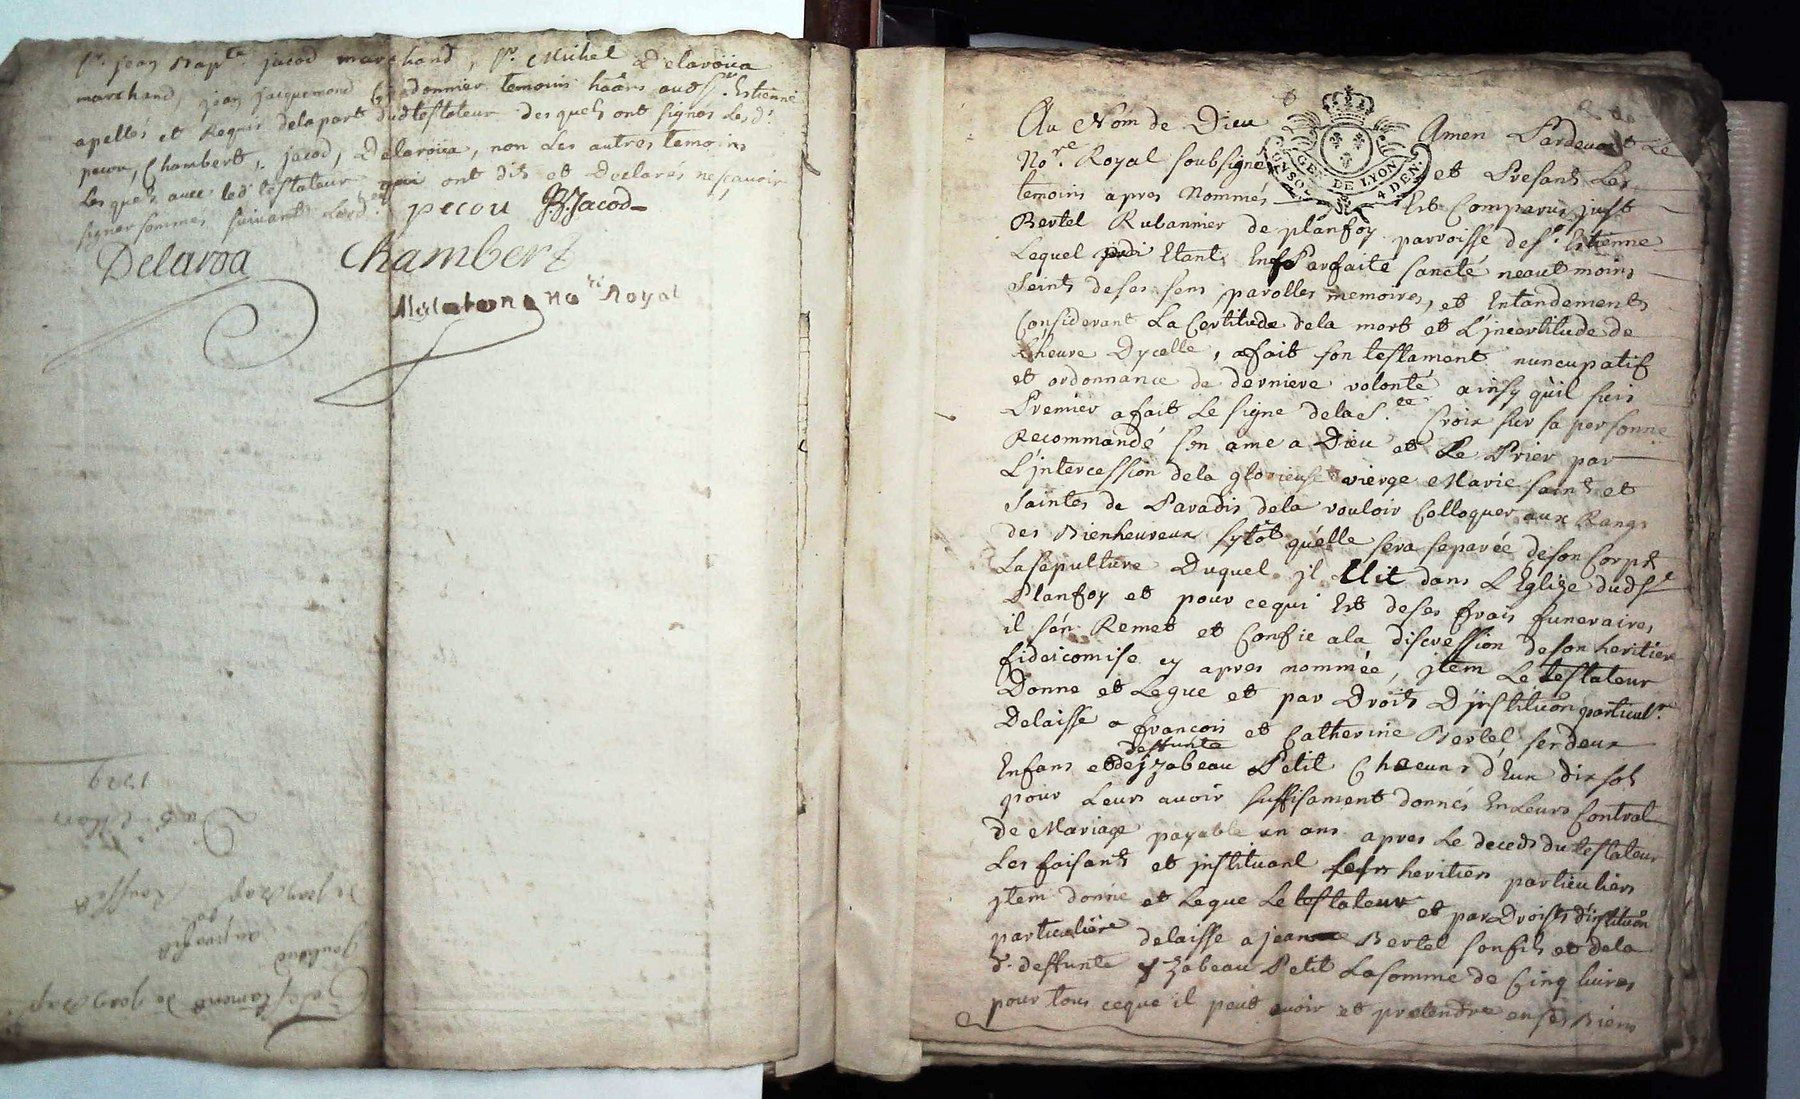 Sr. jean Bapte. jacod marchand, Sr. Michel Delaroüa
marchand, jean jacquemond Cordonnier temoins hâars aud St. Estienne
apellés et Requis dela part dud testateur desquels ont signés lesd.
pecou, Chambert, jacod, Delaroüa, non les autres temoins
Lesquels avec led. testateur qui ont dits et declarés ne sçavoir
signer sommés suivant Lord.
pecou JBJacod
Delaroa
Chambert
Nore Royal
Testament de jean Bap
1729
Au Nom de Dieu Amen Pardevant Le
GEN. DE LYON
4 DEN.
Nore. Royal soubsigné et Presants Les
temoins apres Nommés Est Comparu just
Bertel Rubannier de planfoy parroisse de St. Estienne
Lequel Etant En Parfaite sancté neautmoins
Seints de ses sens, parolles memoires, et Entandements
Considerant La Certitude dela mort et L'jncertitude de
Lheure Dycelle, a fait son testament nuncupatif
et ordonnance de derniere volonté ainsy qu'il suis
Premier a fait Le signe dela Ste. Croix sur sa personne
Recommandé son ame a Dieu et Le Prier par
L'jntercession dela glorieuse vierge Marie saints et
Saintes de Paradis dela vouloir Colloquer aux Rangs
des Bienheureux sytôt qu'elle sera separée de son Corps
La sepulture Duquel jl Elit dans L'Eglize dud
Planfoy et pour cequi Est deses frais funeraires
il s'en Remet et Confie ala discression de son heritiere
fideicomise cy apres nommée, jtem Le testateur
Donne et Legue et par Droits D'jnstitution particulre.
Delaisse a françois et Catherine Bertel ses deux
deffunte
Enfans et de jzabeau Petit Chacuns d'Eux dix sols
pour Leurs avoir suffisament donnés En Leurs Contrat
de Mariage payable un ans apres Le deceds du testateur
Les faisants et jnstituant ses heritiers particuliers
jtem donne et Legue Le testateur et par Droists d'institution
particuliere delaisse a jean Bertel son fils et dela
de. deffunte yzabeau Petit La somme de Cinq livres
pour tous ceque il peut avoir et pretendre en ses Biens